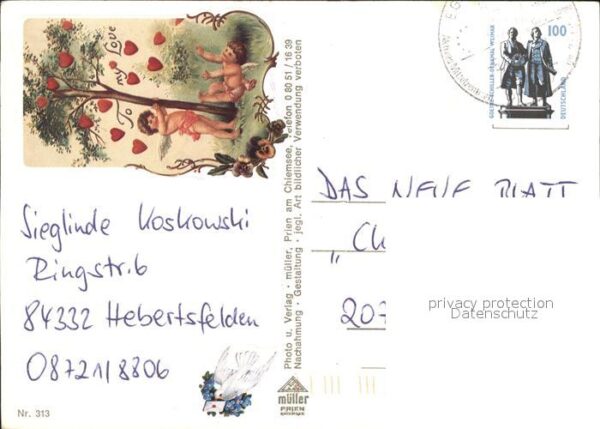 To my Love
Sieglinde Koskowski
Ringstr. 6
84332 Hebertsfelden
08721/8806
Nr. 313
Photo u. Verlag · müller, Prien am Chiemsee, Telefon 0 80 51 / 16 39
Nachahmung · Gestaltung · jegl. Art bildlicher Verwendung verboten
müller
PRIEN
100
GOETHE-SCHILLER-DENKMAL WEIMAR
DEUTSCHLAND
DAS NEUE BLATT
„Ch
207
privacy protection
Datenschutz